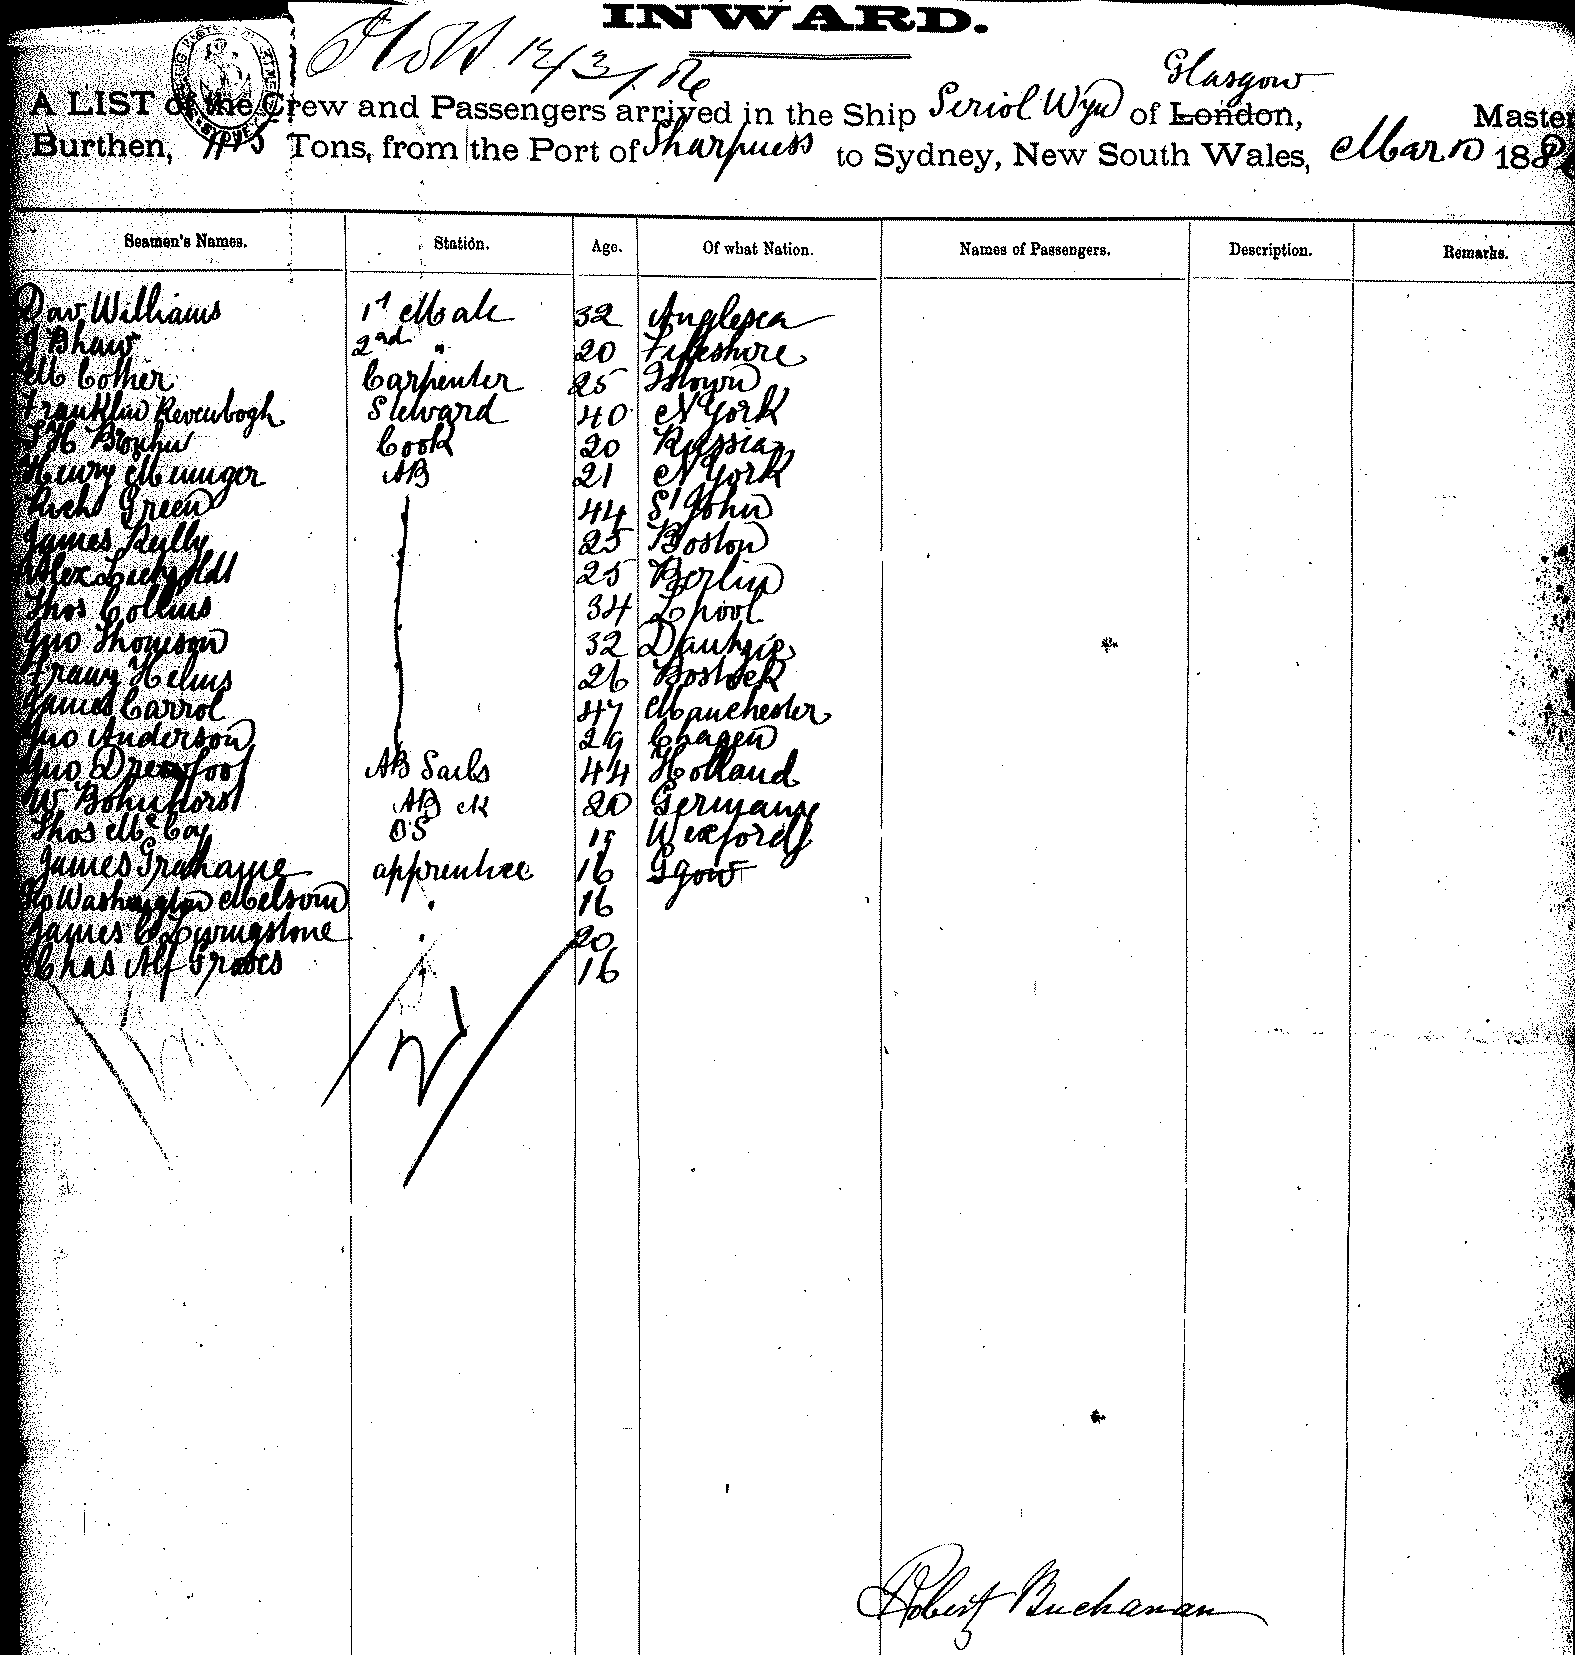 INWARD.
12/3/86
Glasgow
A LIST of the Crew and Passengers arrived in the Ship Seriol Wyn of London, Master
Burthen, Tons, from the Port of Sharpness to Sydney, New South Wales, Mar 10 188
Seamen's Names. Station. Age. Of what Nation. Names of Passengers. Description. Remarks.
Dav Williams 1st Mate 32 Anglesea
J Shaw 2nd " 20 Fifeshire
M Cother Carpenter 25
Franklin Steward 40 N York
Cook 20 Russia
Henry AB 21 N York
Richd Green 44 St John
James Reilly 25 Boston
Alex 25 Berlin
Thos Collins 34 Lpool
Jno Thomson 32 Dantzic
Franz Helms 26 Rostock
James Carrol 47 Manchester
Jno Anderson 29 Chagen
Jno AB Sails 44 Holland
W Bohnhorst AB 20 Germany
Thos McCoy OS 19 Wexford
James Grahame apprentice 16 Ggow
Washington Melsom " 16
James C Livingstone " 20
Chas Alf Groves " 16
Robert Buchanan